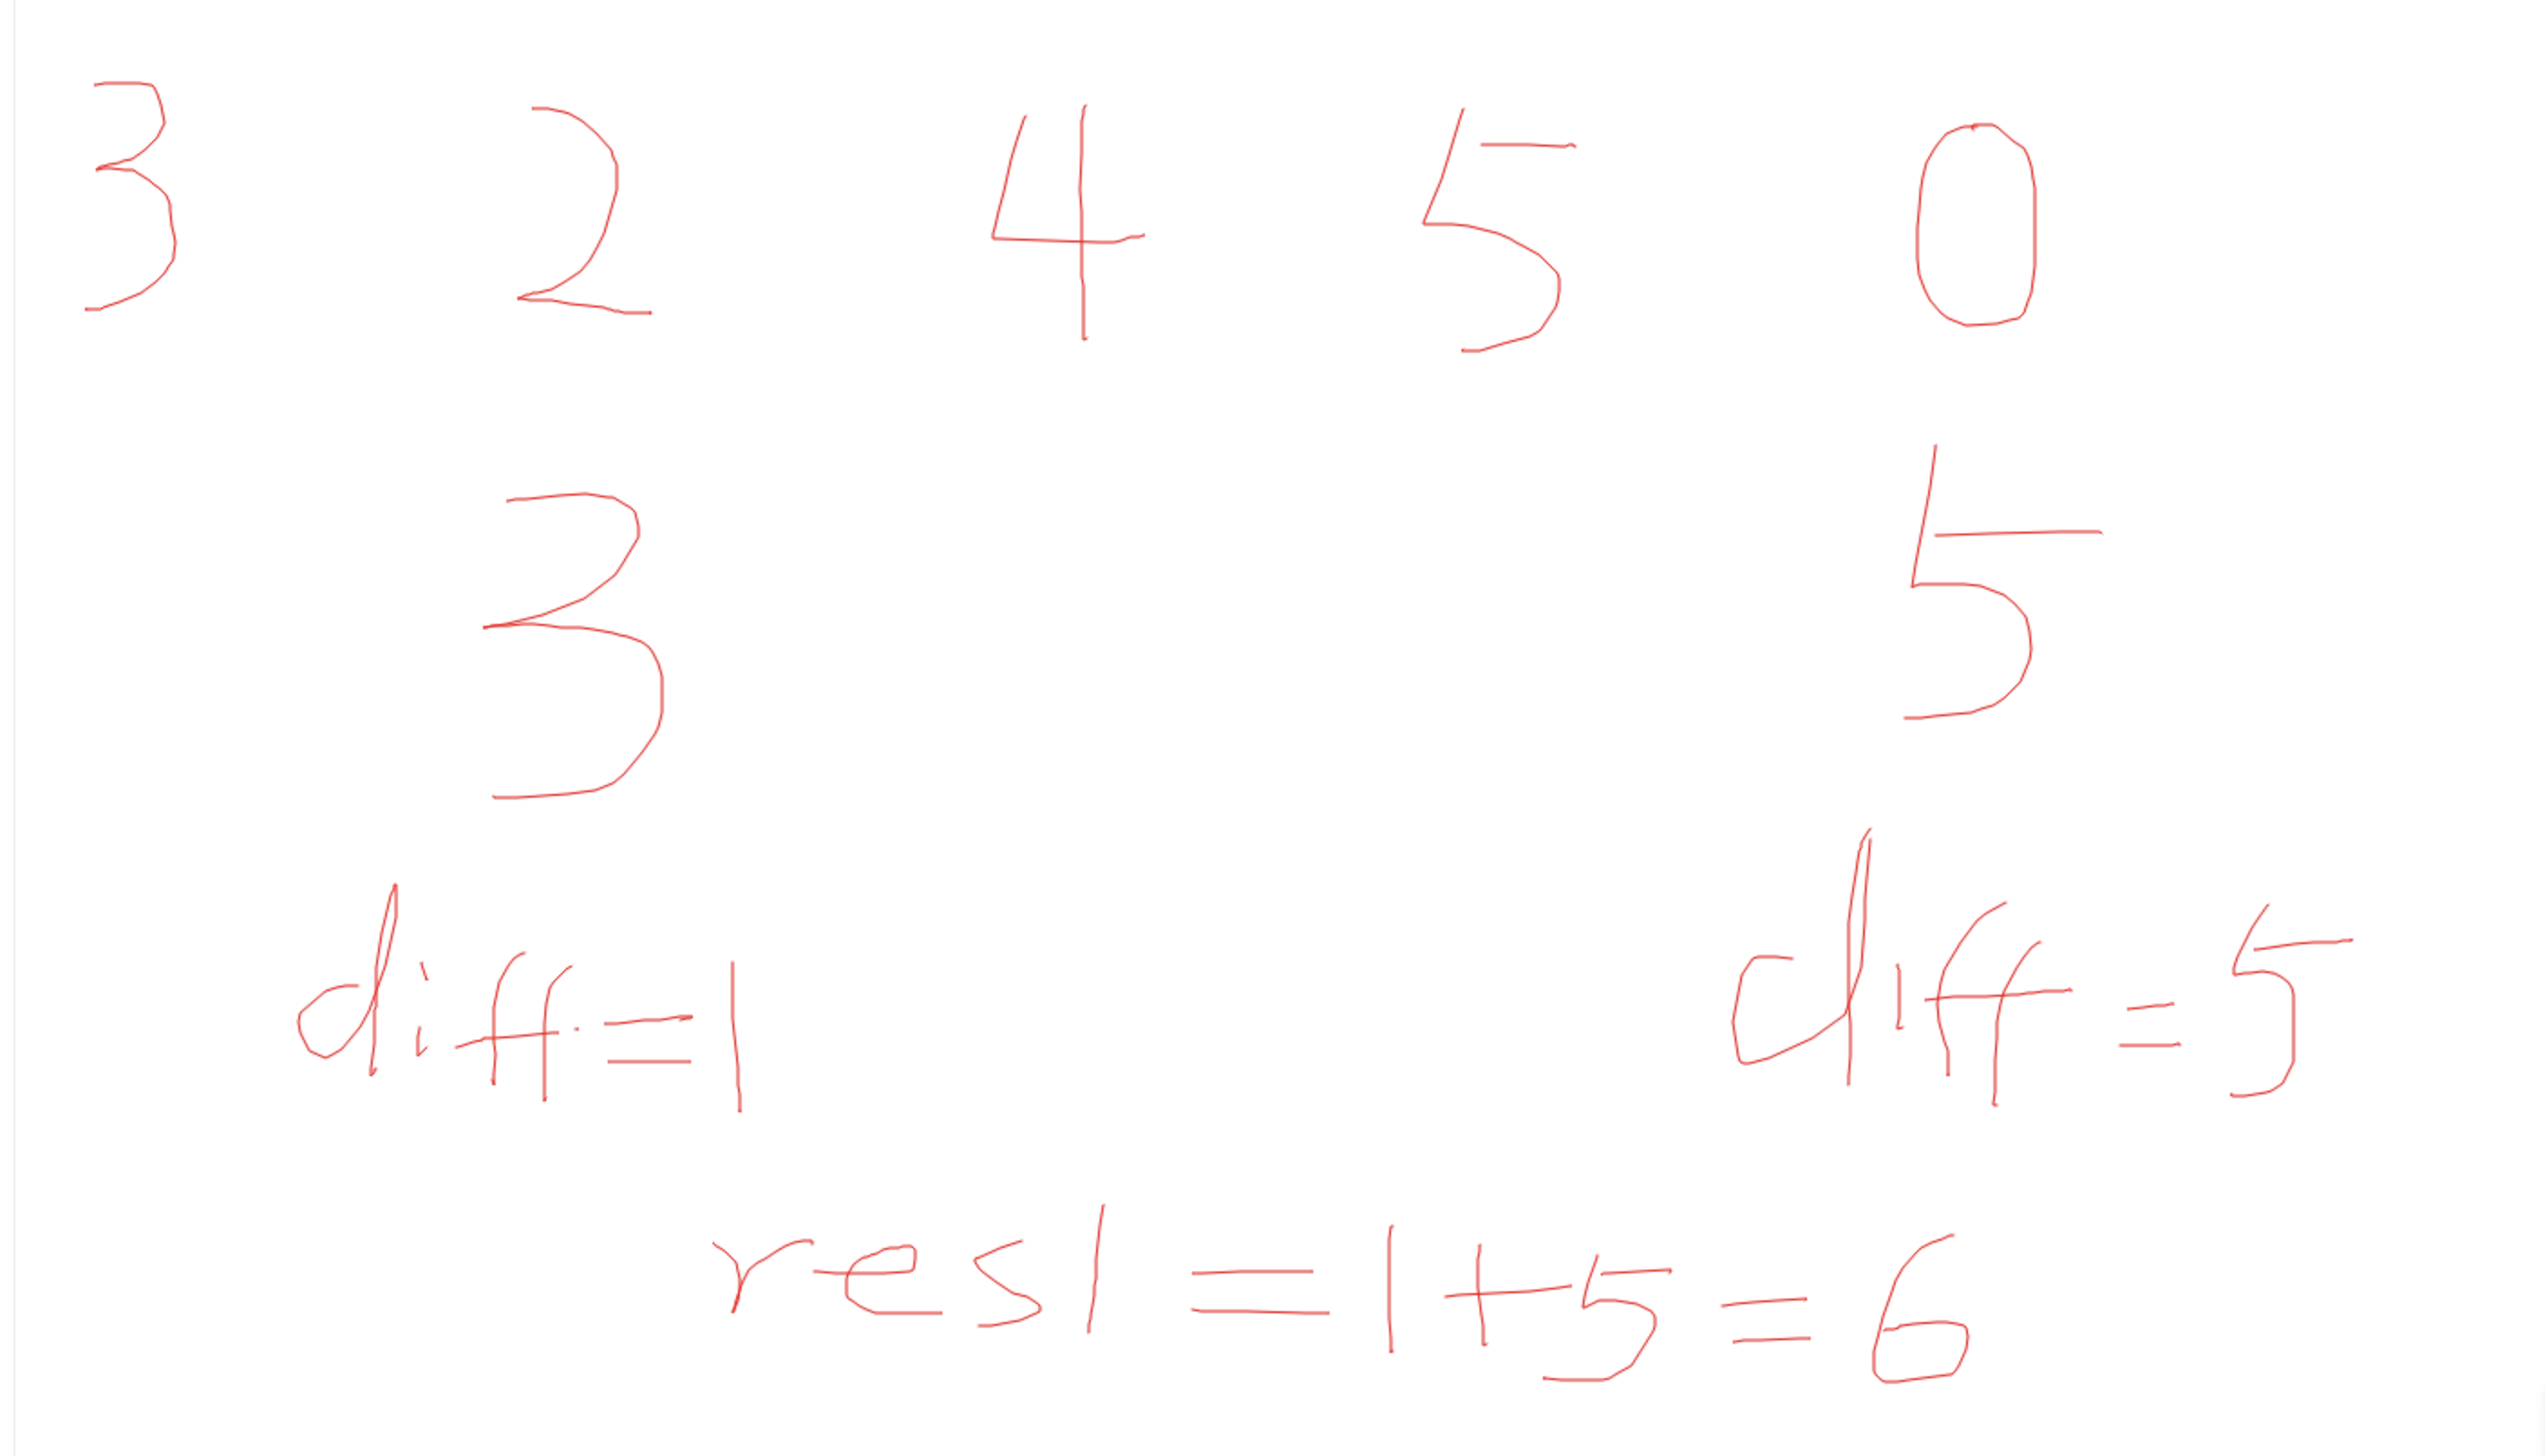 3 2 4 5 0
3 5
diff = 1 diff = 5
res1 = 1+5 = 6